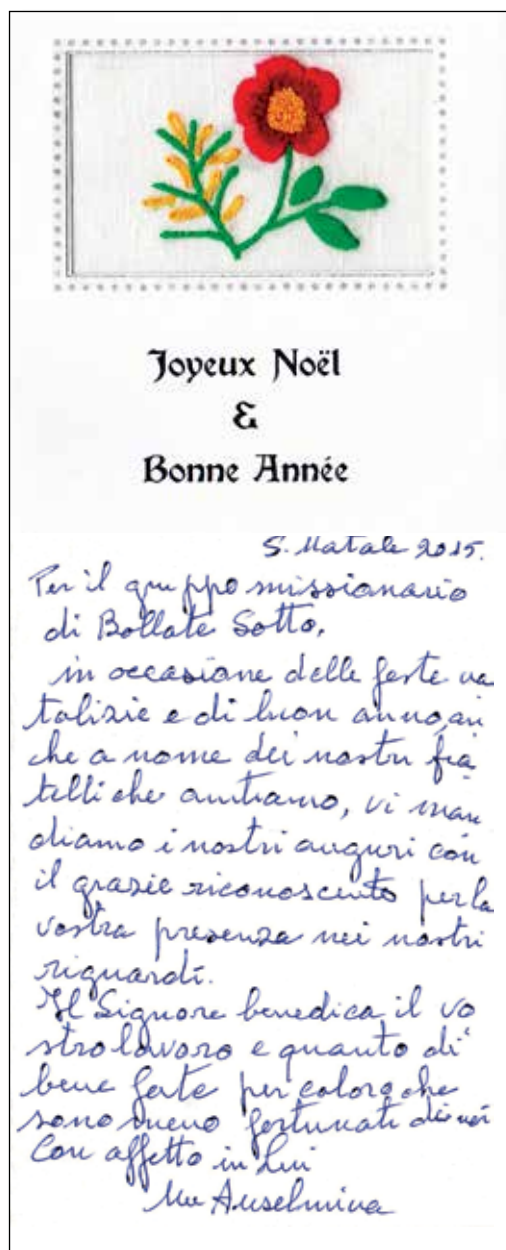 Joyeux Noël
&
Bonne Année
S. Natale 2015.
Per il gruppo missionario
di Bollate Sotto,
in occasione delle feste na
talizie e di buon anno, an
che a nome dei nostri fra
telli che aiutiamo, vi man
diamo i nostri auguri con
il grazie riconoscente per la
vostra presenza nei nostri
riguardi.
Il Signore benedica il vo
stro lavoro e quanto di
bene fate per coloro che
sono meno fortunati di noi
Con affetto in Lui
Anselmina